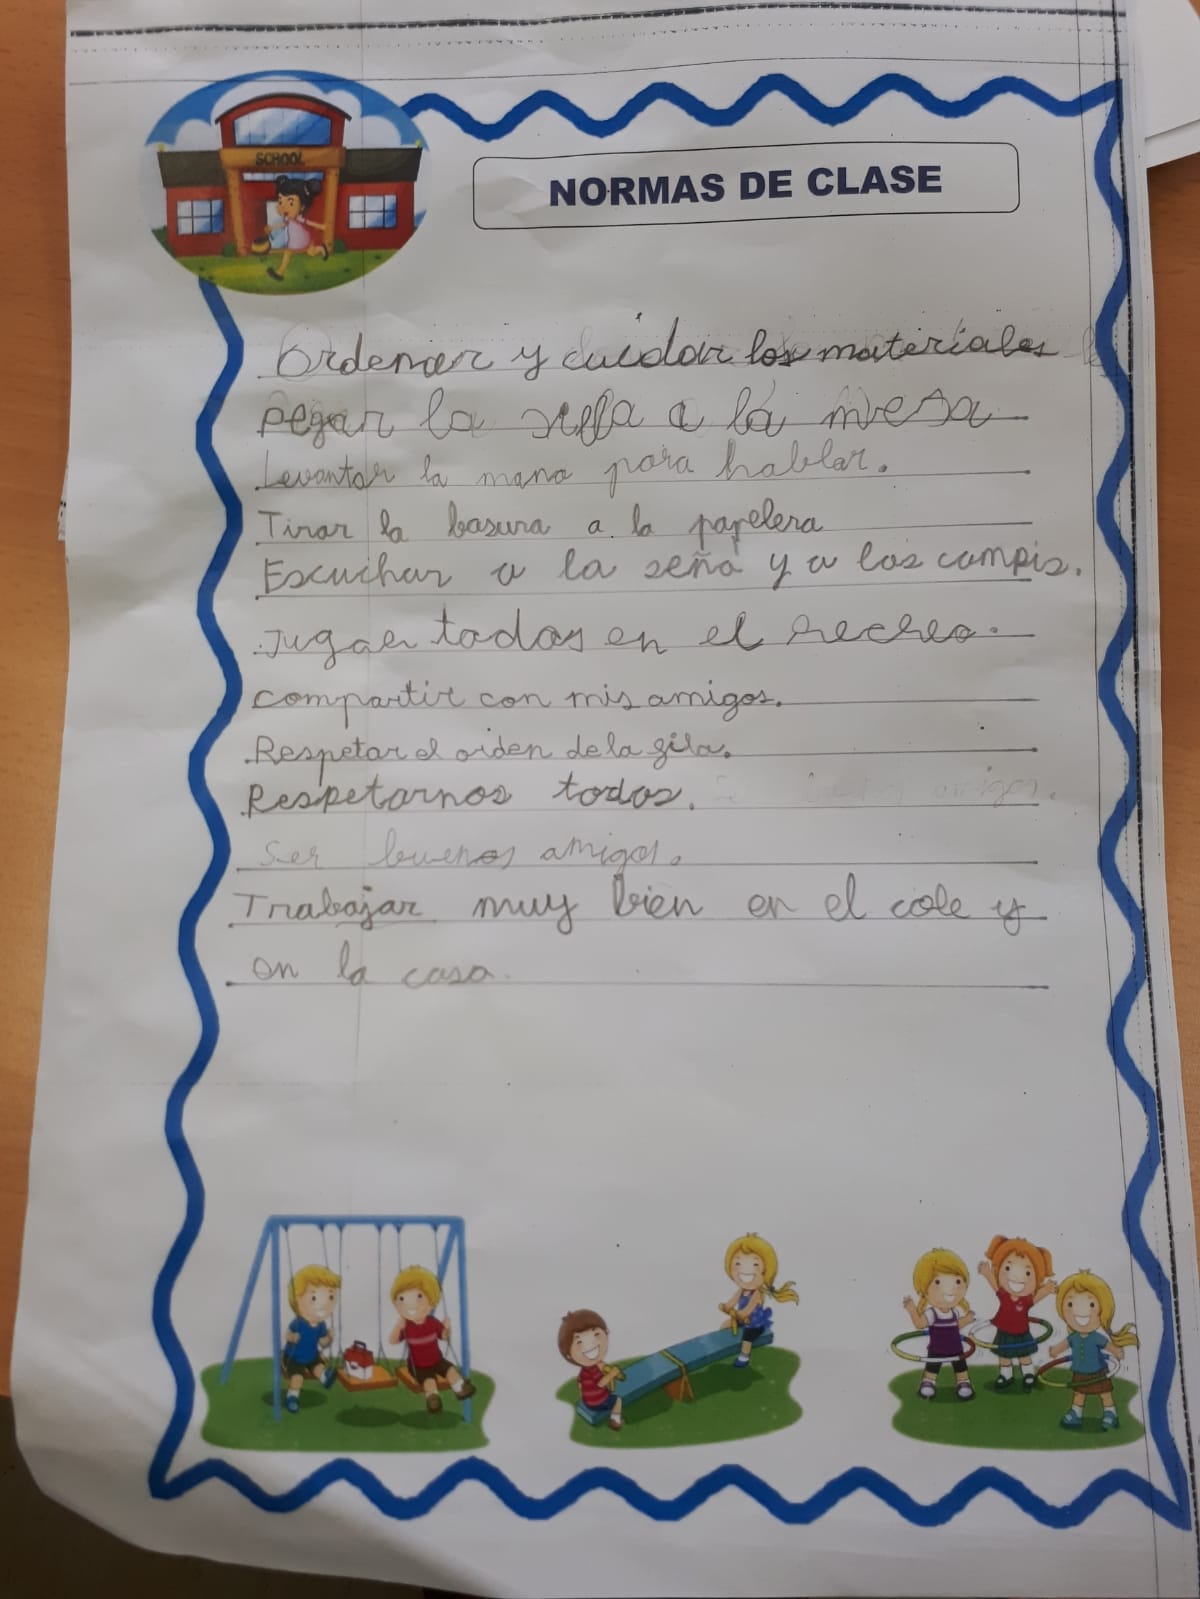 SCHOOL
NORMAS DE CLASE
Ordenar y cuidar los materiales
pegar la silla a la mesa
Levantar la mano para hablar.
Tirar la basura a la papelera
Escuchar a la seño y a los compis.
Jugar todos en el recreo.
compartir con mis amigos.
Respetar el orden de la fila.
Respetarnos todos.
Ser buenos amigos.
Trabajar muy bien en el cole y
en la casa.